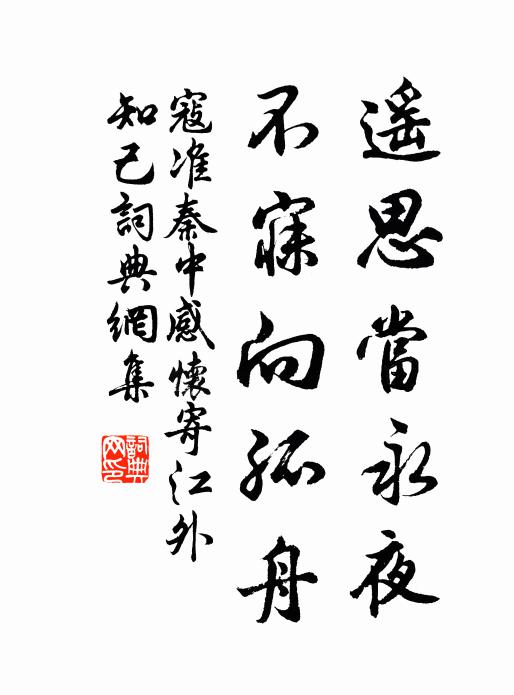 遥思當永夜
不寐向孤舟
寇准秦中感懷寄江外
知己詞典網集
詞典
网印